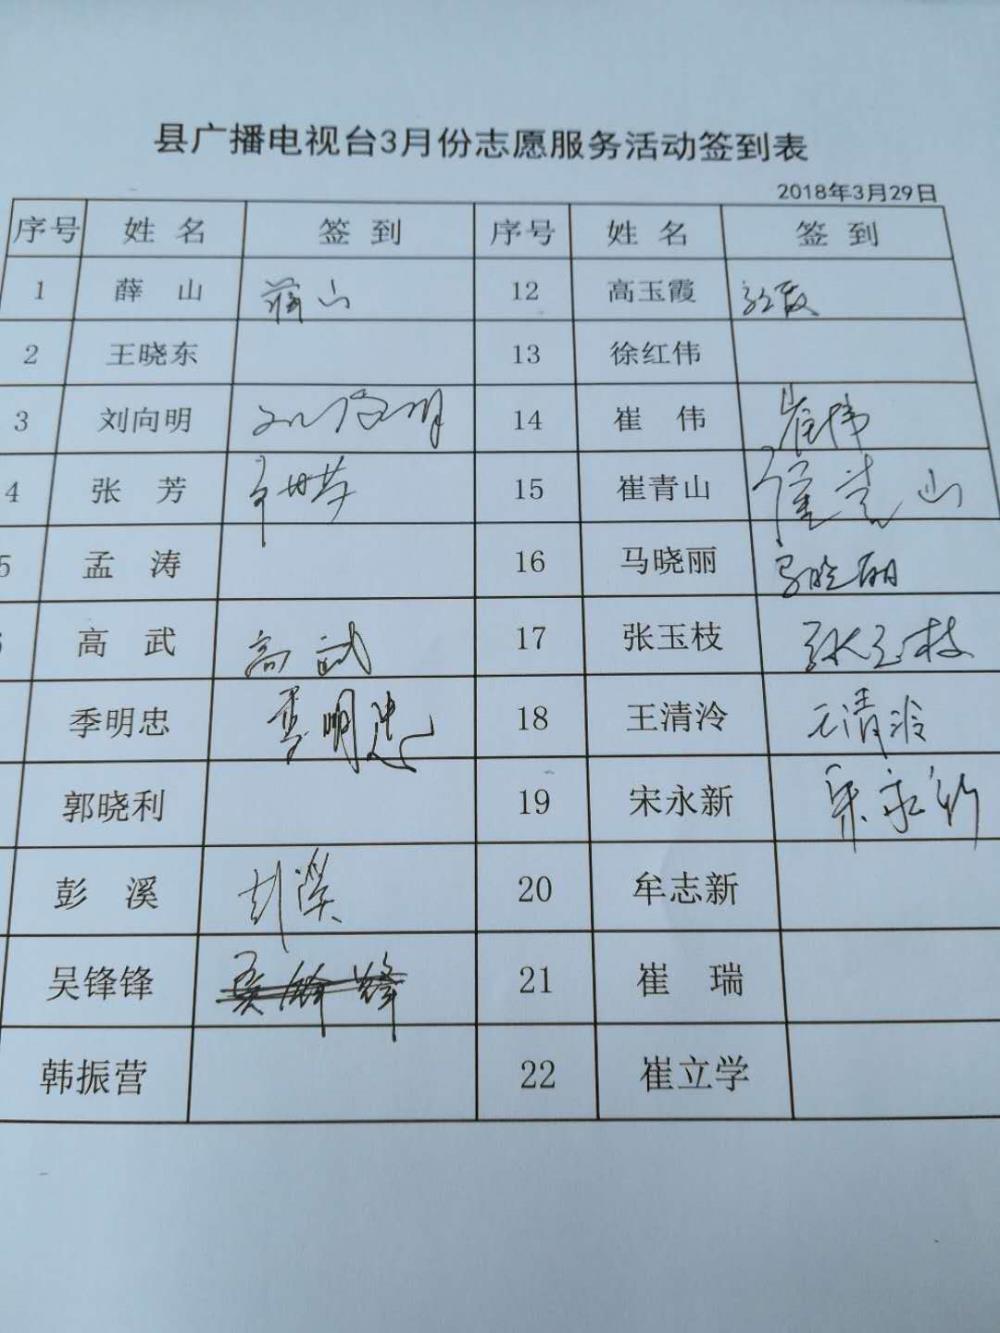 县广播电视台3月份志愿服务活动签到表
2018年3月29日
序号 姓名 签到 序号 姓名 签到
1 薛山 薛山 12 高玉霞
2 王晓东 13 徐红伟
3 刘向明 刘向明 14 崔伟 崔伟
4 张芳 15 崔青山 崔青山
5 孟涛 16 马晓丽 马晓丽
高武 高武 17 张玉枝 张玉枝
季明忠 季明忠 18 王清泠 王清泠
郭晓利 19 宋永新 宋永新
彭溪 彭溪 20 牟志新
吴锋锋 吴锋锋 21 崔瑞
韩振营 22 崔立学